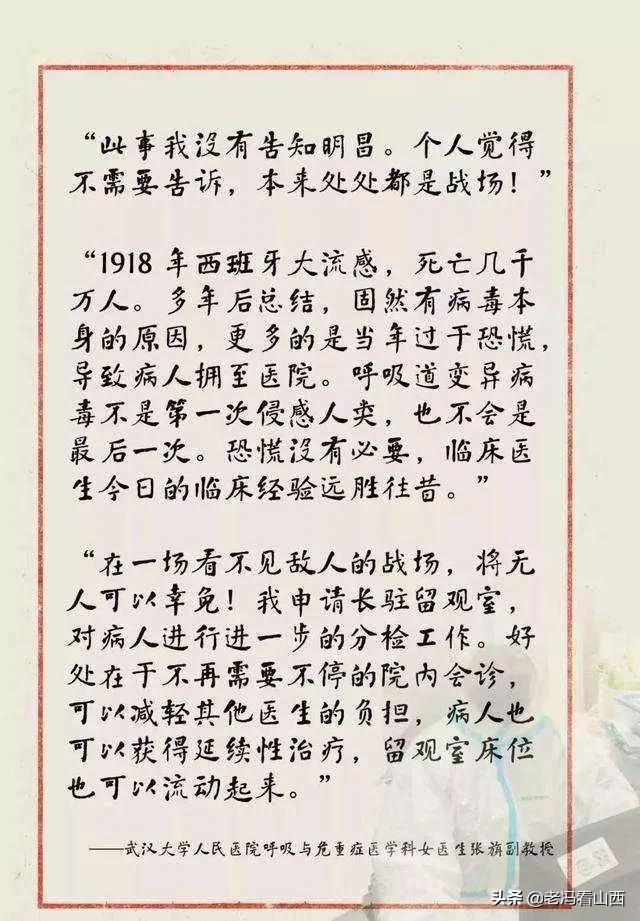 “此事我没有告知明昌。个人觉得
不需要告诉，本来处处都是战场！”
“1918 年西班牙大流感，死亡几千
万人。多年后总结，固然有病毒本
身的原因，更多的是当年过于恐慌，
导致病人拥至医院。呼吸道变异病
毒不是第一次侵感人类，也不会是
最后一次。恐慌没有必要，临床医
生今日的临床经验远胜往昔。”
“在一场看不见敌人的战场，将无
人可以幸免！我申请长驻留观室，
对病人进行进一步的分检工作。好
处在于不再需要不停的院内会诊，
可以减轻其他医生的负担，病人也
可以获得延续性治疗，留观室床位
也可以流动起来。”
——武汉大学人民医院呼吸与危重症医学科女医生张旃副教授
头条 @老冯看山西